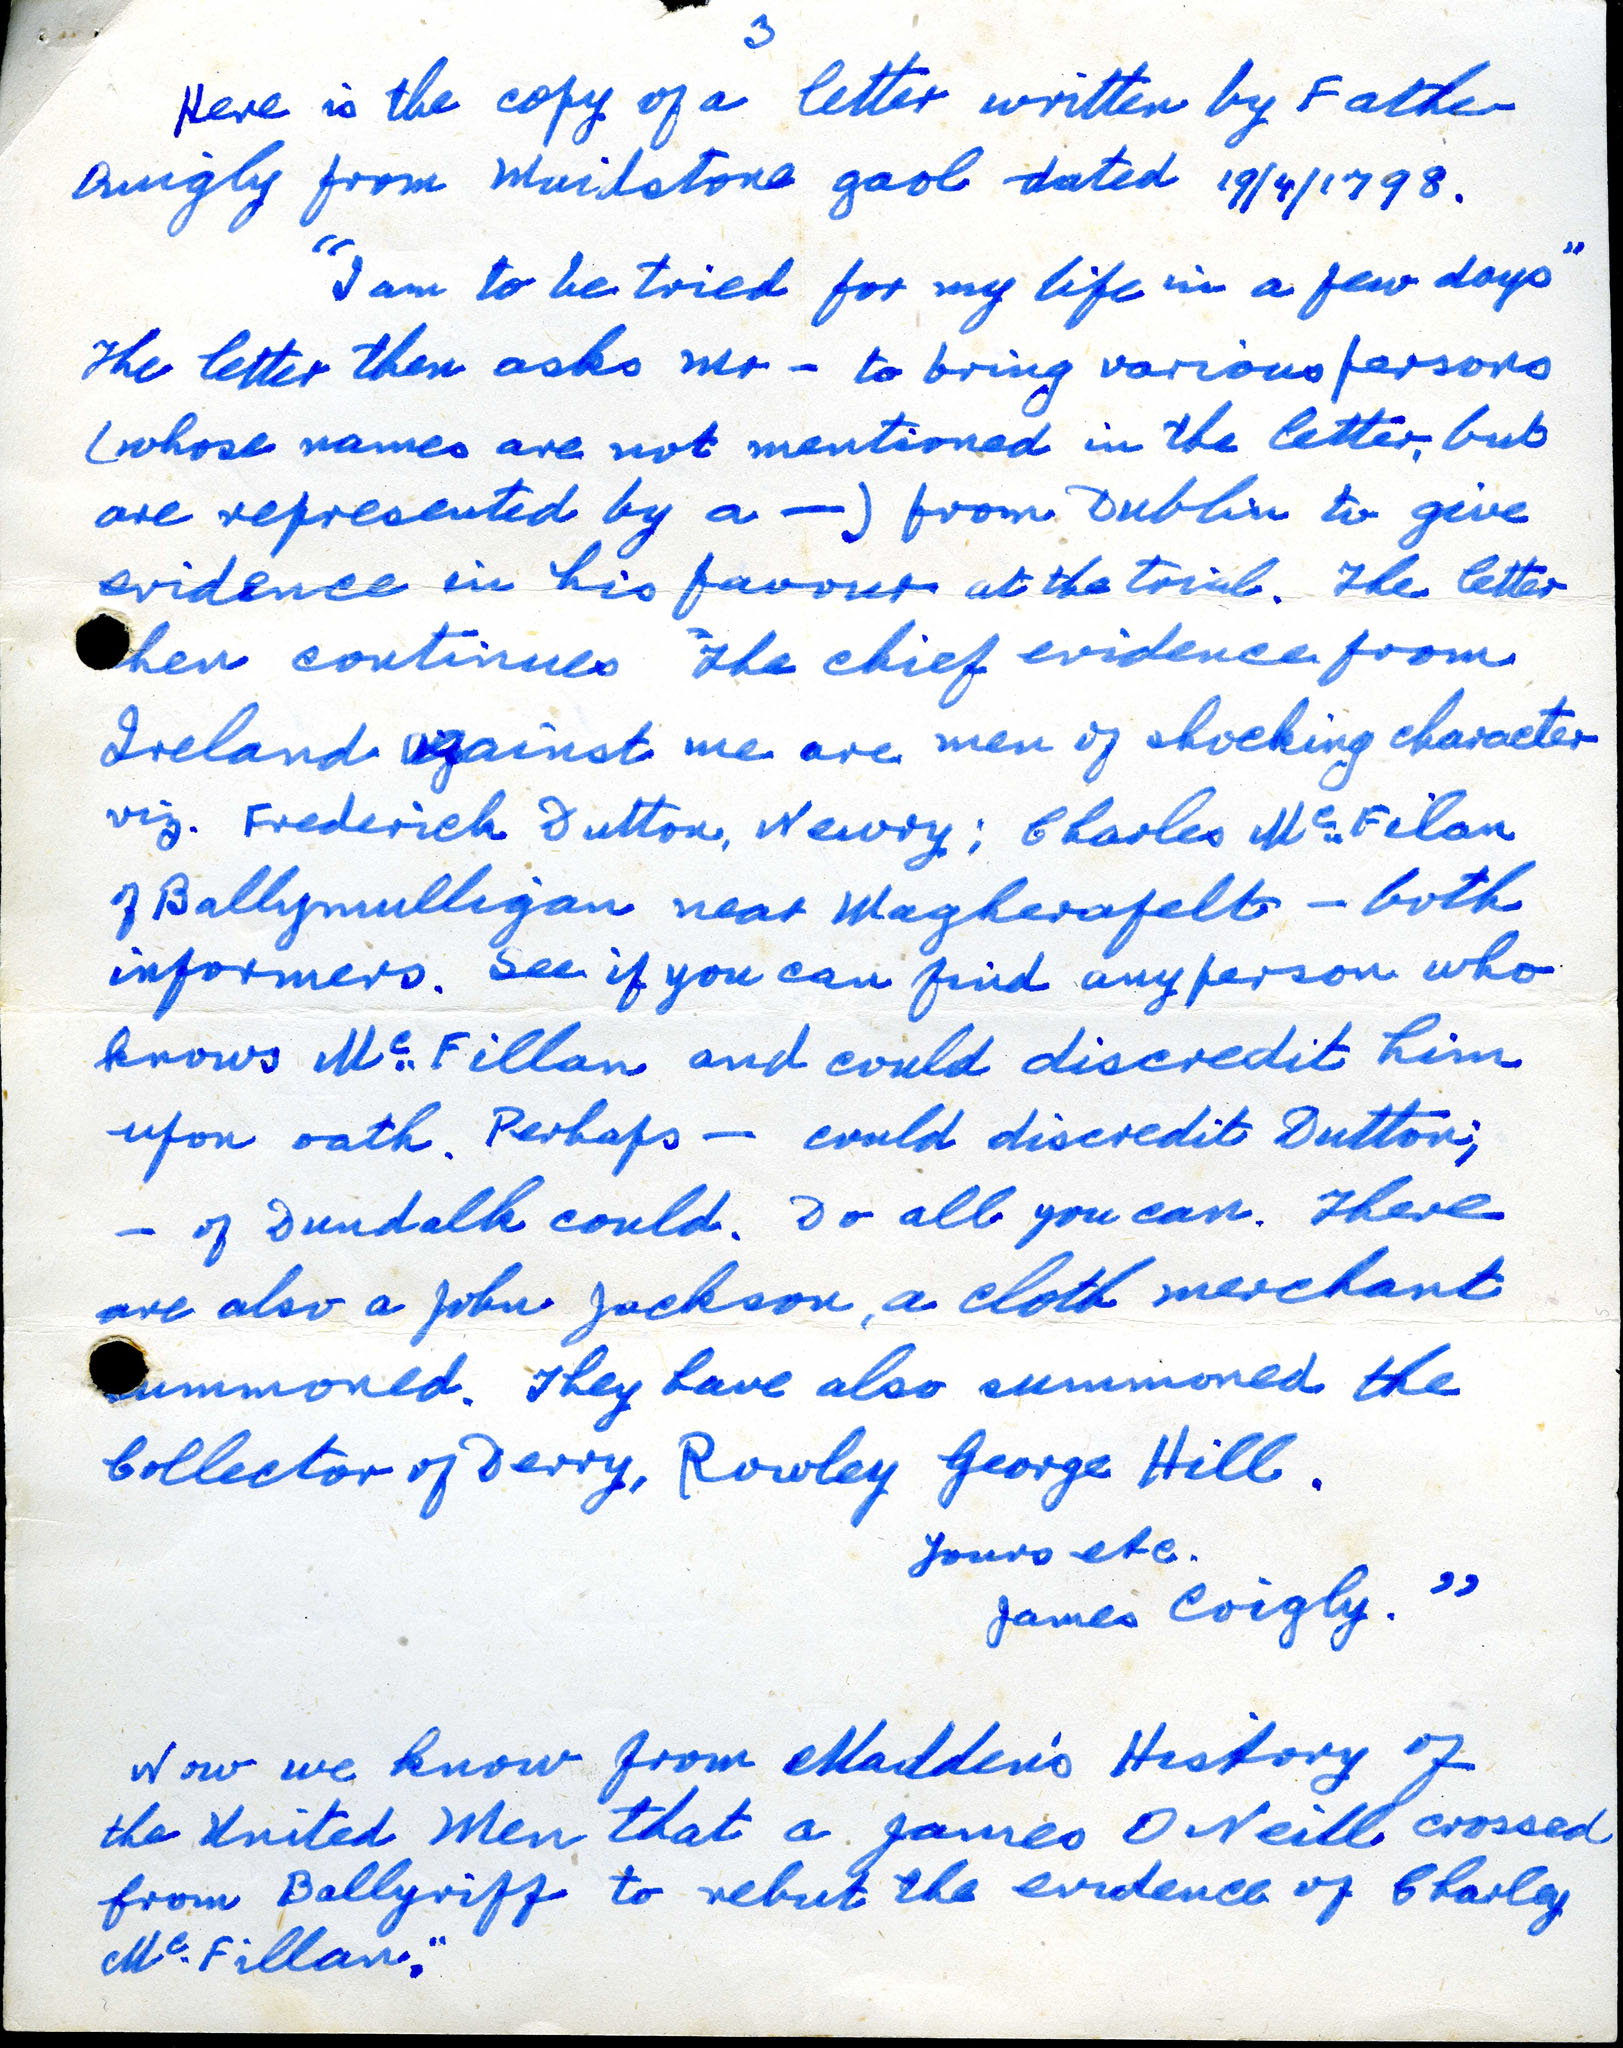 3
Here is the copy of a letter written by Father
Quigly from Maidstone gaol dated 19/4/1798.
"I am to be tried for my life in a few days"
The letter then asks Mr — to bring various persons
(whose names are not mentioned in the letter, but
are represented by a —) from Dublin to give
evidence in his favour at the trial. The letter
then continues "The chief evidence from
Ireland against me are men of shocking character
viz. Frederick Dutton, Newry; Charles Mc. Filan
of Ballymulligan near Magherafelt — both
informers. See if you can find any person who
knows Mc. Fillan and could discredit him
upon oath. Perhaps — could discredit Dutton;
— of Dundalk could. Do all you can. There
are also a John Jackson, a cloth merchant
summoned. They have also summoned the
Collector of Derry, Rowley George Hill.
Yours etc.
James Coigly."
Now we know from Madden's History of
the United Men that a James O Neill crossed
from Ballyriff to rebut the evidence of Charley
Mc. Fillan."